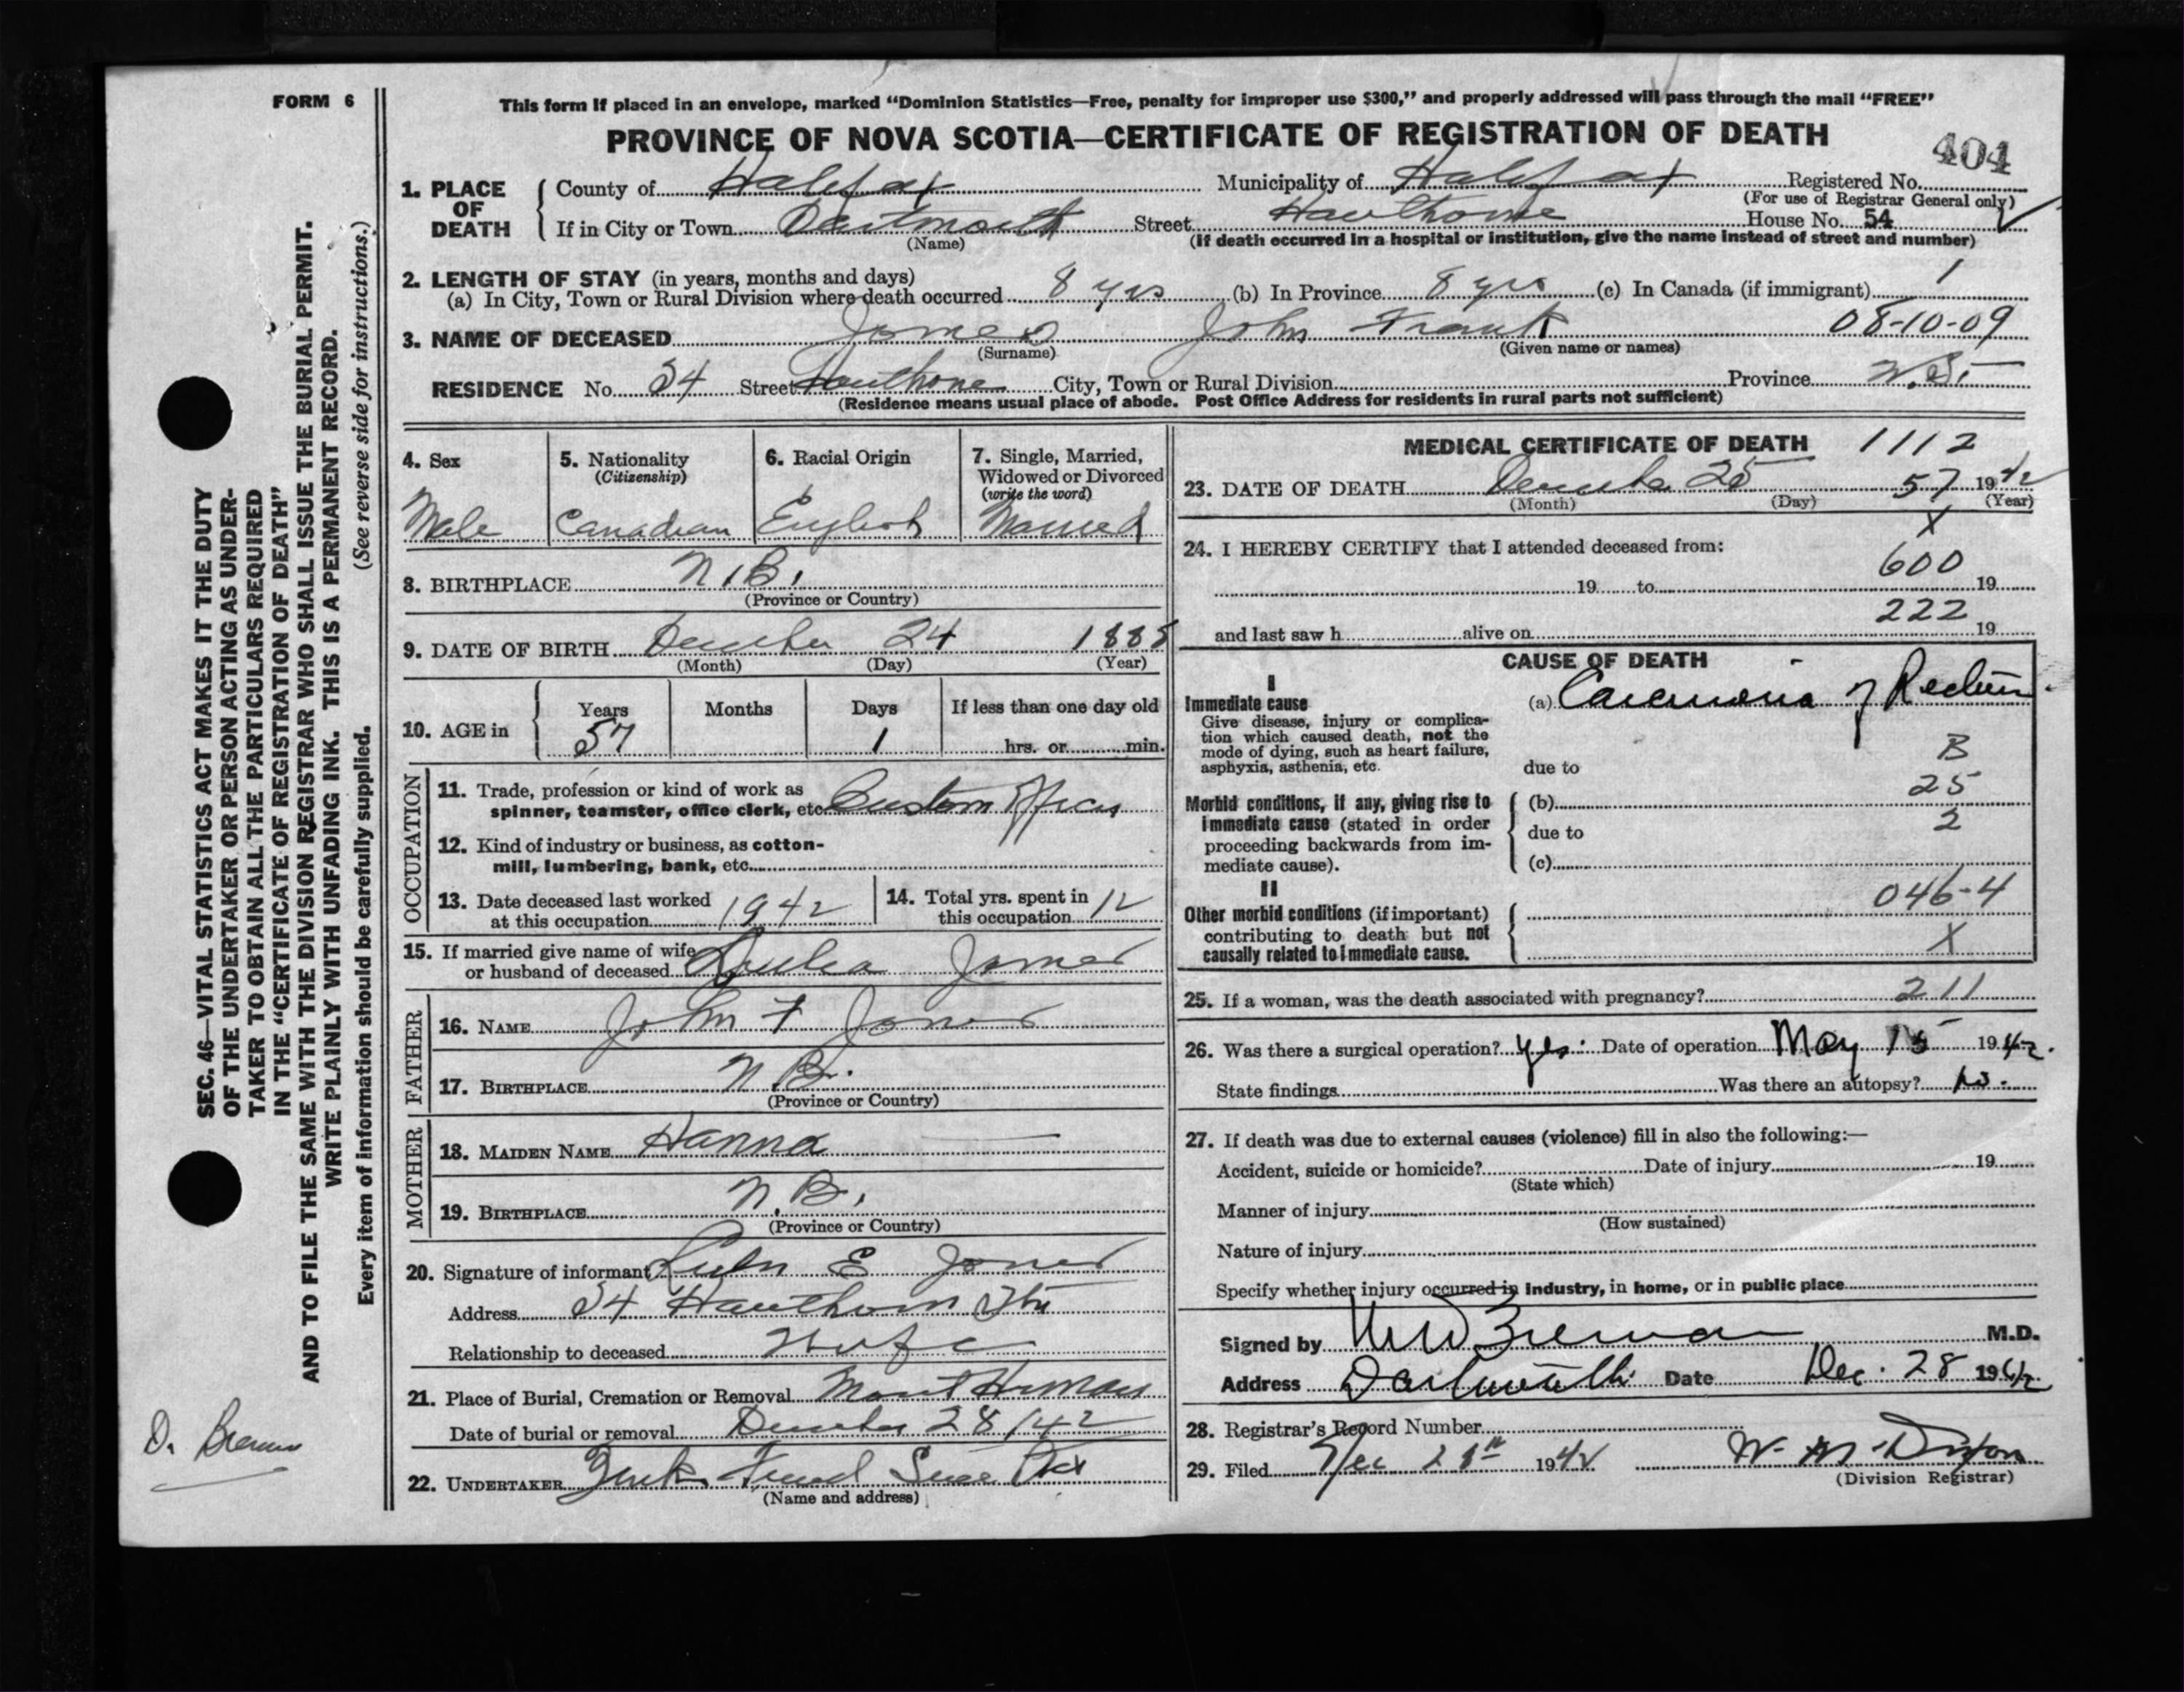 FORM 6
This form if placed in an envelope, marked “Dominion Statistics—Free, penalty for improper use $300,” and properly addressed will pass through the mail “FREE”
PROVINCE OF NOVA SCOTIA—CERTIFICATE OF REGISTRATION OF DEATH
404
1. PLACE OF DEATH
County of Halifax Municipality of Halifax Registered No.
(For use of Registrar General only)
If in City or Town Dartmouth Street Hawthorne House No. 54
(Name) (If death occurred in a hospital or institution, give the name instead of street and number)
2. LENGTH OF STAY (in years, months and days)
(a) In City, Town or Rural Division where death occurred 8 yrs (b) In Province 8 yrs (c) In Canada (if immigrant) 1
3. NAME OF DECEASED Jones John Frank 08-10-09
(Surname) (Given name or names)
RESIDENCE No. 54 Street Hawthorne City, Town or Rural Division Province N.S.
(Residence means usual place of abode. Post Office Address for residents in rural parts not sufficient)
4. Sex
Male
5. Nationality
(Citizenship)
Canadian
6. Racial Origin
English
7. Single, Married,
Widowed or Divorced
(write the word)
Married
8. BIRTHPLACE N.B.
(Province or Country)
9. DATE OF BIRTH December 24 1885
(Month) (Day) (Year)
10. AGE in Years Months Days If less than one day old
57 1 hrs. or min.
OCCUPATION
11. Trade, profession or kind of work as
spinner, teamster, office clerk, etc. Custom Officer
12. Kind of industry or business, as cotton-
mill, lumbering, bank, etc.
13. Date deceased last worked
at this occupation 1942
14. Total yrs. spent in
this occupation 12
15. If married give name of wife
or husband of deceased Jones
FATHER
16. NAME John F Jones
17. BIRTHPLACE N.B.
(Province or Country)
MOTHER
18. MAIDEN NAME Hanna
19. BIRTHPLACE N.B.
(Province or Country)
20. Signature of informant E Jones
Address 54 Hawthorn
Relationship to deceased Wife
21. Place of Burial, Cremation or Removal Mount Herman
Date of burial or removal December 28/42
22. UNDERTAKER
(Name and address)
MEDICAL CERTIFICATE OF DEATH 1112
23. DATE OF DEATH December 25 57 1942
(Month) (Day) (Year)
X
24. I HEREBY CERTIFY that I attended deceased from:
600
19 to 19
222
and last saw h alive on 19
CAUSE OF DEATH
I
Immediate cause
Give disease, injury or complica-
tion which caused death, not the
mode of dying, such as heart failure,
asphyxia, asthenia, etc.
(a) Carcinoma of Rectum.
B
due to
25
Morbid conditions, if any, giving rise to
immediate cause (stated in order
proceeding backwards from im-
mediate cause).
(b)
2
due to
(c)
II
Other morbid conditions (if important)
contributing to death but not
causally related to immediate cause.
046-4
X
25. If a woman, was the death associated with pregnancy? 211
26. Was there a surgical operation? yes. Date of operation May 15 1942.
State findings Was there an autopsy? no.
27. If death was due to external causes (violence) fill in also the following:—
Accident, suicide or homicide? Date of injury 19
(State which)
Manner of injury
(How sustained)
Nature of injury
Specify whether injury occurred in industry, in home, or in public place
Signed by M.D.
Address Dartmouth Date Dec. 28 1942
28. Registrar's Record Number
29. Filed Dec 28th 1942
(Division Registrar)
SEC. 46—VITAL STATISTICS ACT MAKES IT THE DUTY
OF THE UNDERTAKER OR PERSON ACTING AS UNDER-
TAKER TO OBTAIN ALL THE PARTICULARS REQUIRED
IN THE “CERTIFICATE OF REGISTRATION OF DEATH”
AND TO FILE THE SAME WITH THE DIVISION REGISTRAR WHO SHALL ISSUE THE BURIAL PERMIT.
WRITE PLAINLY WITH UNFADING INK. THIS IS A PERMANENT RECORD.
Every item of information should be carefully supplied. (See reverse side for instructions.)
D.